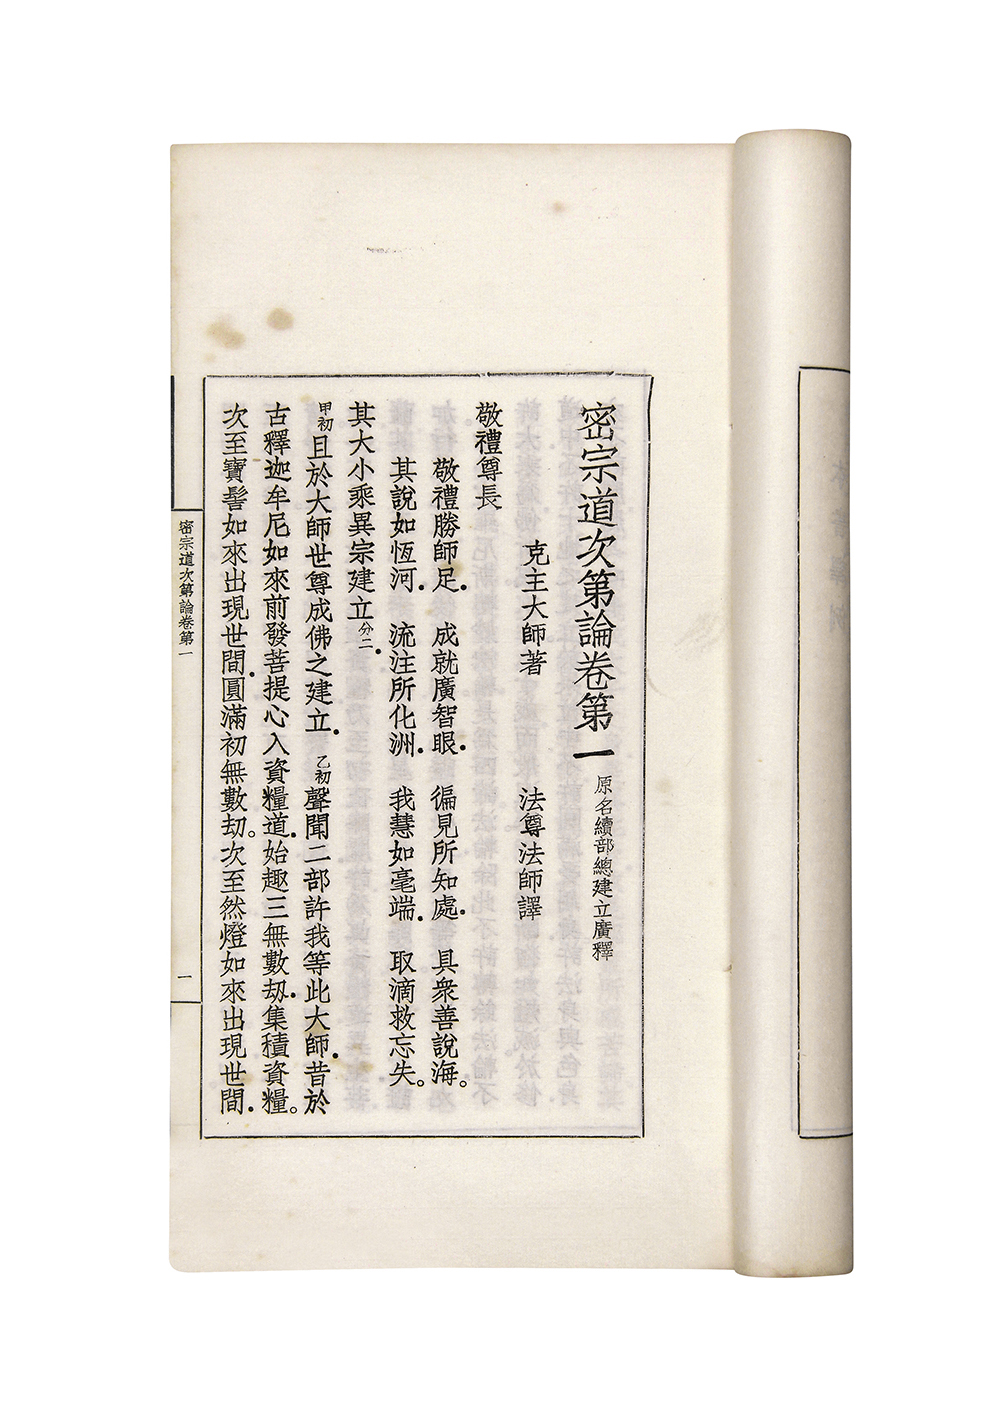 密宗道次第論卷第一 原名續部總建立廣釋
克主大師著 法尊法師譯
敬禮尊長
敬禮勝師足．成就廣智眼．徧見所知處．具衆善說海。
其說如恆河．流注所化洲．我慧如毫端．取滴救忘失。
其大小乘異宗建立分二．
甲初且於大師世尊成佛之建立．乙初聲聞二部許我等此大師．昔於
古釋迦牟尼如來前發菩提心入資糧道．始趣三無數劫．集積資糧。
次至寶髻如來出現世間．圓滿初無數劫。次至然燈如來出現世間．
密宗道次第論卷第一
一